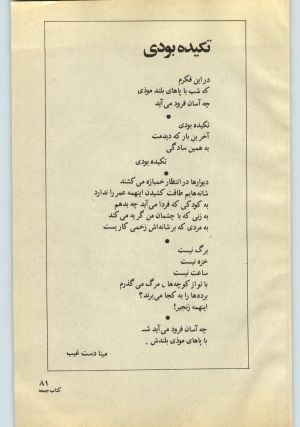 تکیده بودی
در این فکرم
که شب با پاهای بلند موذی
چه آسان فرود می‌آید
●
تکیده بودی
آخرین بار که دیدمت
به همین سادگی
تکیده بودی
●
دیوارها در انتظار خمیازه می کشند
شانه‌هایم طاقت کشیدن اینهمه عمر را ندارد
به کودکی که فردا می‌آید چه بدهم
به زنی که با چشمان من گریه می کند
به مردی که بر شانه‌اش زخمی کاریست
●
برگ نیست
خزه نیست
ساعت نیست
با تو از کوچه‌ها مرگ می گذرم
برده‌ها را به کجا می‌برند؟
اینهمه زنجیر!
●
چه آسان فرود می‌آید شب
با پاهای موذی بلندش .
مینا دست غیب
۸۱
کتاب جمعه